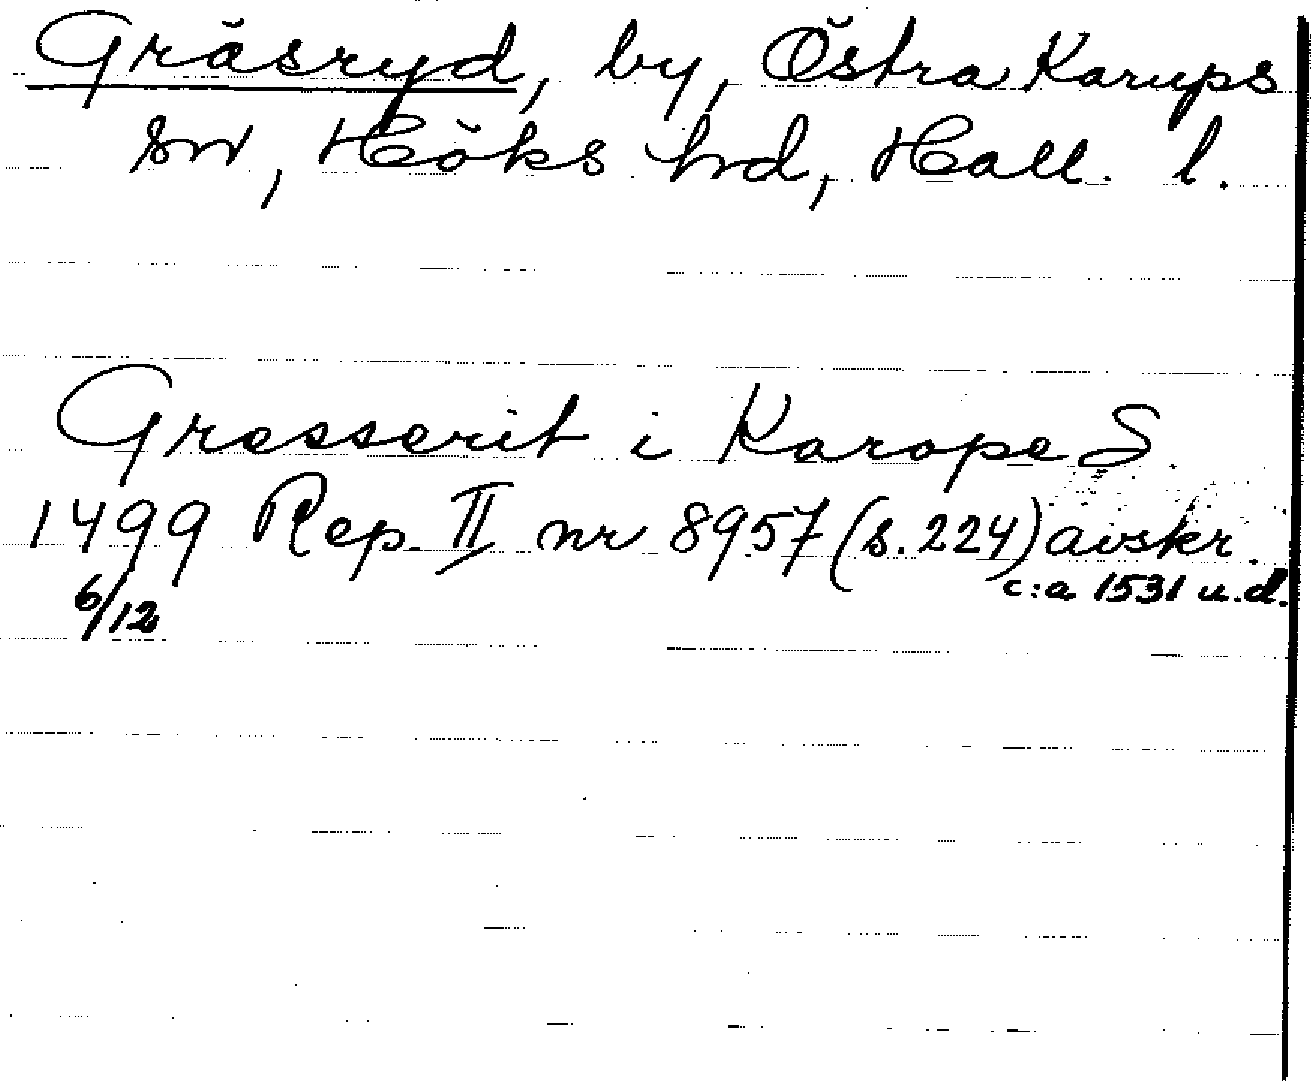 Gräsryd, by, Östra Karups
sn, Höks hrd, Hall. l.
Gresserit i Karope S.
1499 Rep. II nr 8957 (s. 224) avskr.
6/12 c:a 1531 u.d.